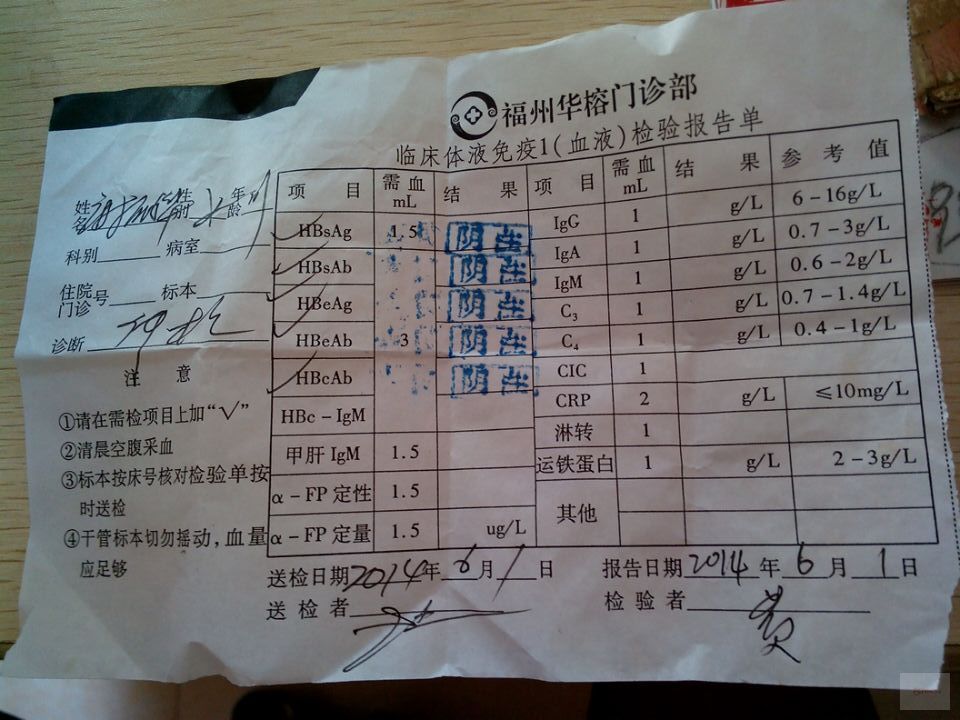 福州华榕门诊部
临床体液免疫1(血液)检验报告单
姓名 性 年龄
科别 病室
住院门诊号 标本
诊断
注 意
①请在需检项目上加“√”
②清晨空腹采血
③标本按床号核对检验单按时送检
④干管标本切勿摇动，血量应足够
项 目 需血mL 结 果 项 目 需血mL 结 果 参考值
√ HBsAg 1.5 阴性 IgG 1 g/L 6-16g/L
√ HBsAb 阴性 IgA 1 g/L 0.7-3g/L
√ HBeAg 阴性 IgM 1 g/L 0.6-2g/L
√ HBeAb 3 阴性 C3 1 g/L 0.7-1.4g/L
√ HBcAb 阴性 C4 1 g/L 0.4-1g/L
HBc-IgM CIC 1
甲肝 IgM 1.5 CRP 2 g/L ≤10mg/L
α-FP 定性 1.5 淋转 1
α-FP 定量 1.5 ug/L 运铁蛋白 1 g/L 2-3g/L
其他
送检日期2014年6月1日 报告日期2014年6月1日
送检者 检验者 黄